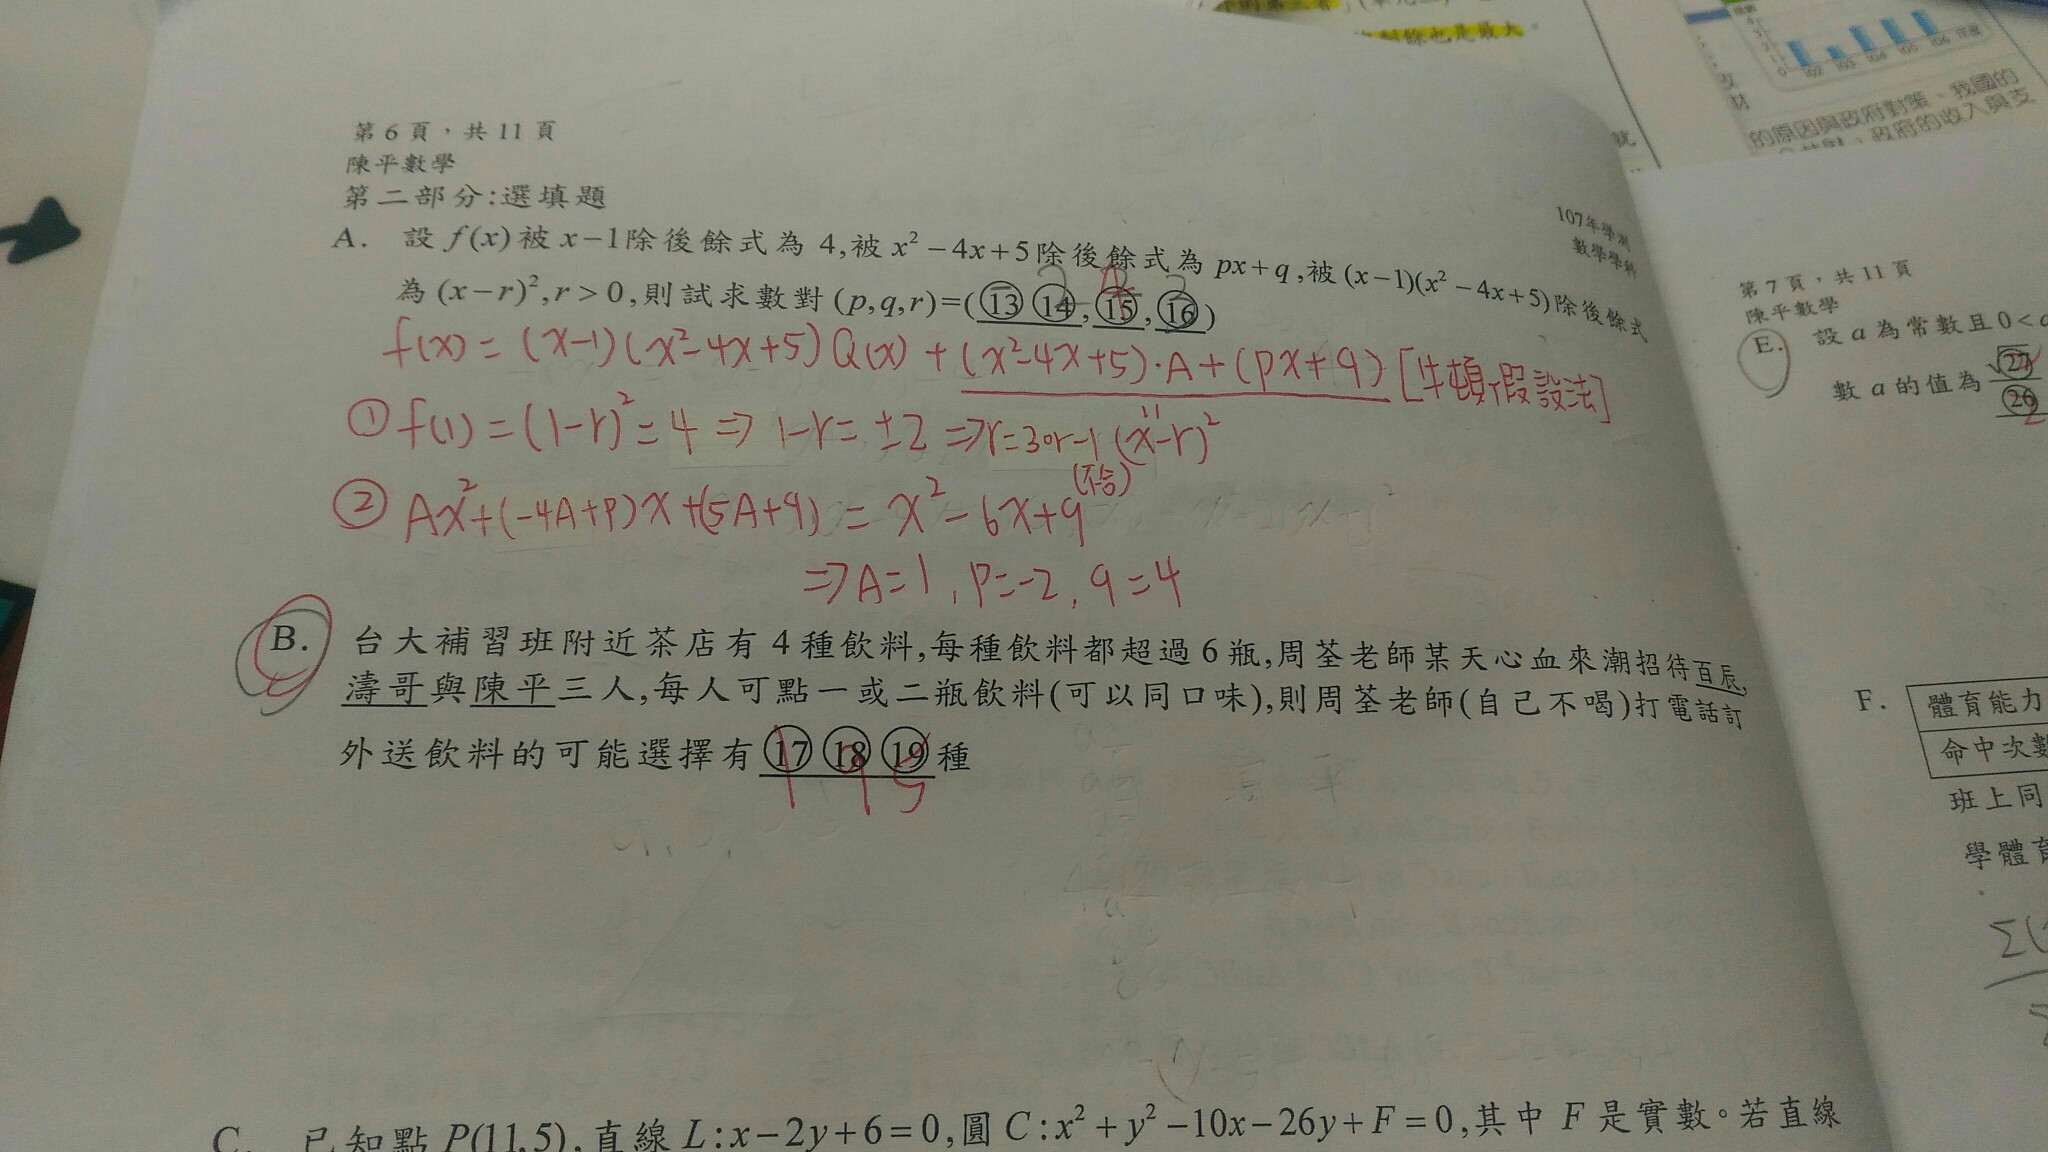 第 6 頁，共 11 頁
陳平數學
第二部分:選填題
107年學測
數學學科
A. 設 f(x) 被 x−1 除後餘式為 4,被 x²−4x+5 除後餘式為 px+q,被 (x−1)(x²−4x+5) 除後餘式
為 (x−r)²,r>0,則試求數對 (p,q,r)=(⑬⑭,⑮,⑯)
f(x) = (x-1)(x²-4x+5)Q(x) + (x²-4x+5)·A+(px+q) [牛頓假設法]
① f(1) = (1-r)² = 4 ⇒ 1-r = ±2 ⇒ r=3 or -1 (x-r)²
(不合)
② Ax²+(-4A+p)x+(5A+q) = x²-6x+9
⇒ A=1, p=-2, q=4
B. 台大補習班附近茶店有 4 種飲料,每種飲料都超過 6 瓶,周荃老師某天心血來潮招待百辰,
濤哥與陳平三人,每人可點一或二瓶飲料(可以同口味),則周荃老師(自己不喝)打電話訂
外送飲料的可能選擇有⑰⑱⑲種
1 9 5
C. 已知點 P(11,5),直線 L:x−2y+6=0,圓 C:x²+y²−10x−26y+F=0,其中 F 是實數。若直線
第 7 頁，共 11 頁
陳平數學
E. 設 a 為常數且 0<
數 a 的值為 √㉗
㉖
F. 體育能力
命中次數
班上同
學體育
的原因與政府對策、我國的
政府的收入與支
102 103 104 105 106